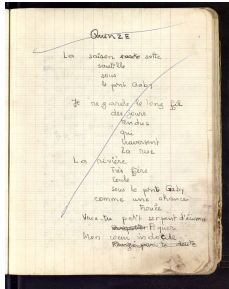 Quinze
La saison saute
sautille
sous
le pont Gaby
Je regarde le long fil
des jours
tendus
qui
traversent
la rue
La rivière
très fière
coule
sous le pont Gaby
comme une chance
Vois-tu petit serpent d'écume
Mon cœur indocile